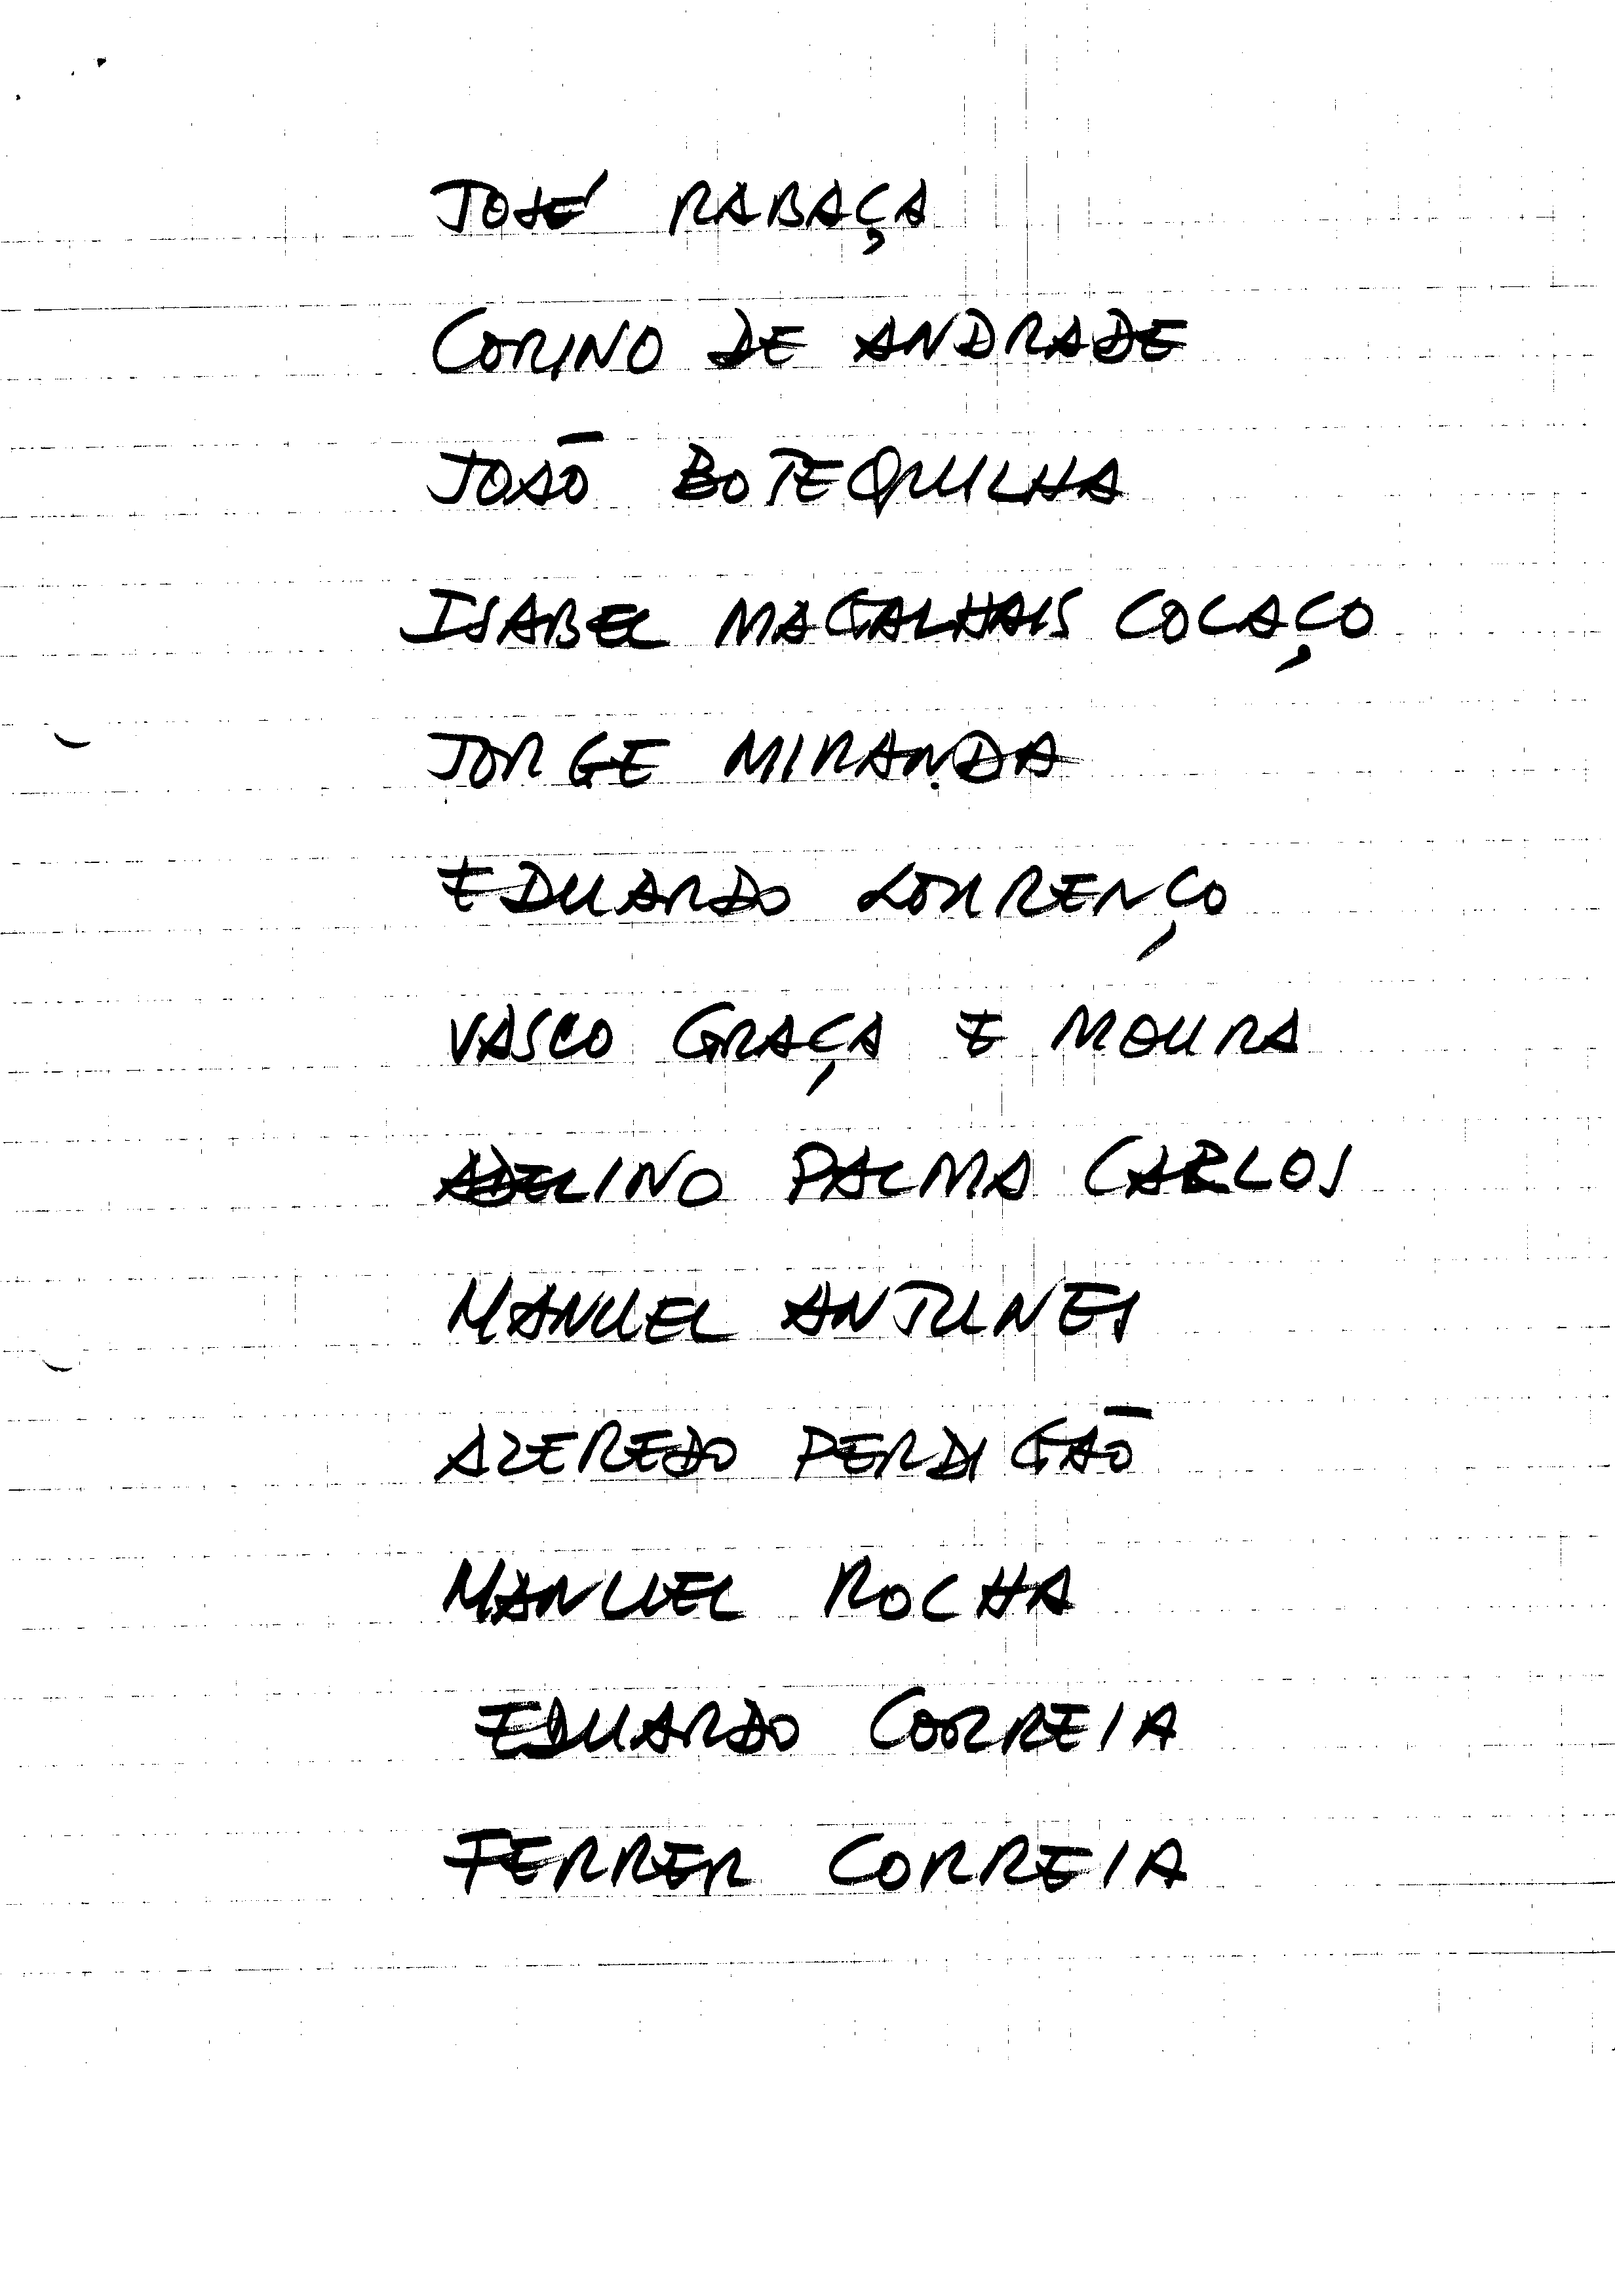 JOSÉ RABAÇA
CORINO DE ANDRADE
JOÃO BOTEQUILHA
ISABEL MAGALHAIS COLAÇO
JORGE MIRANDA
EDUARDO LOURENÇO
VASCO GRAÇA E MOURA
ADELINO PALMA CARLOS
MANUEL ANTUNES
AZEREDO PERDIGÃO
MANUEL ROCHA
EDUARDO CORREIA
FERRER CORREIA